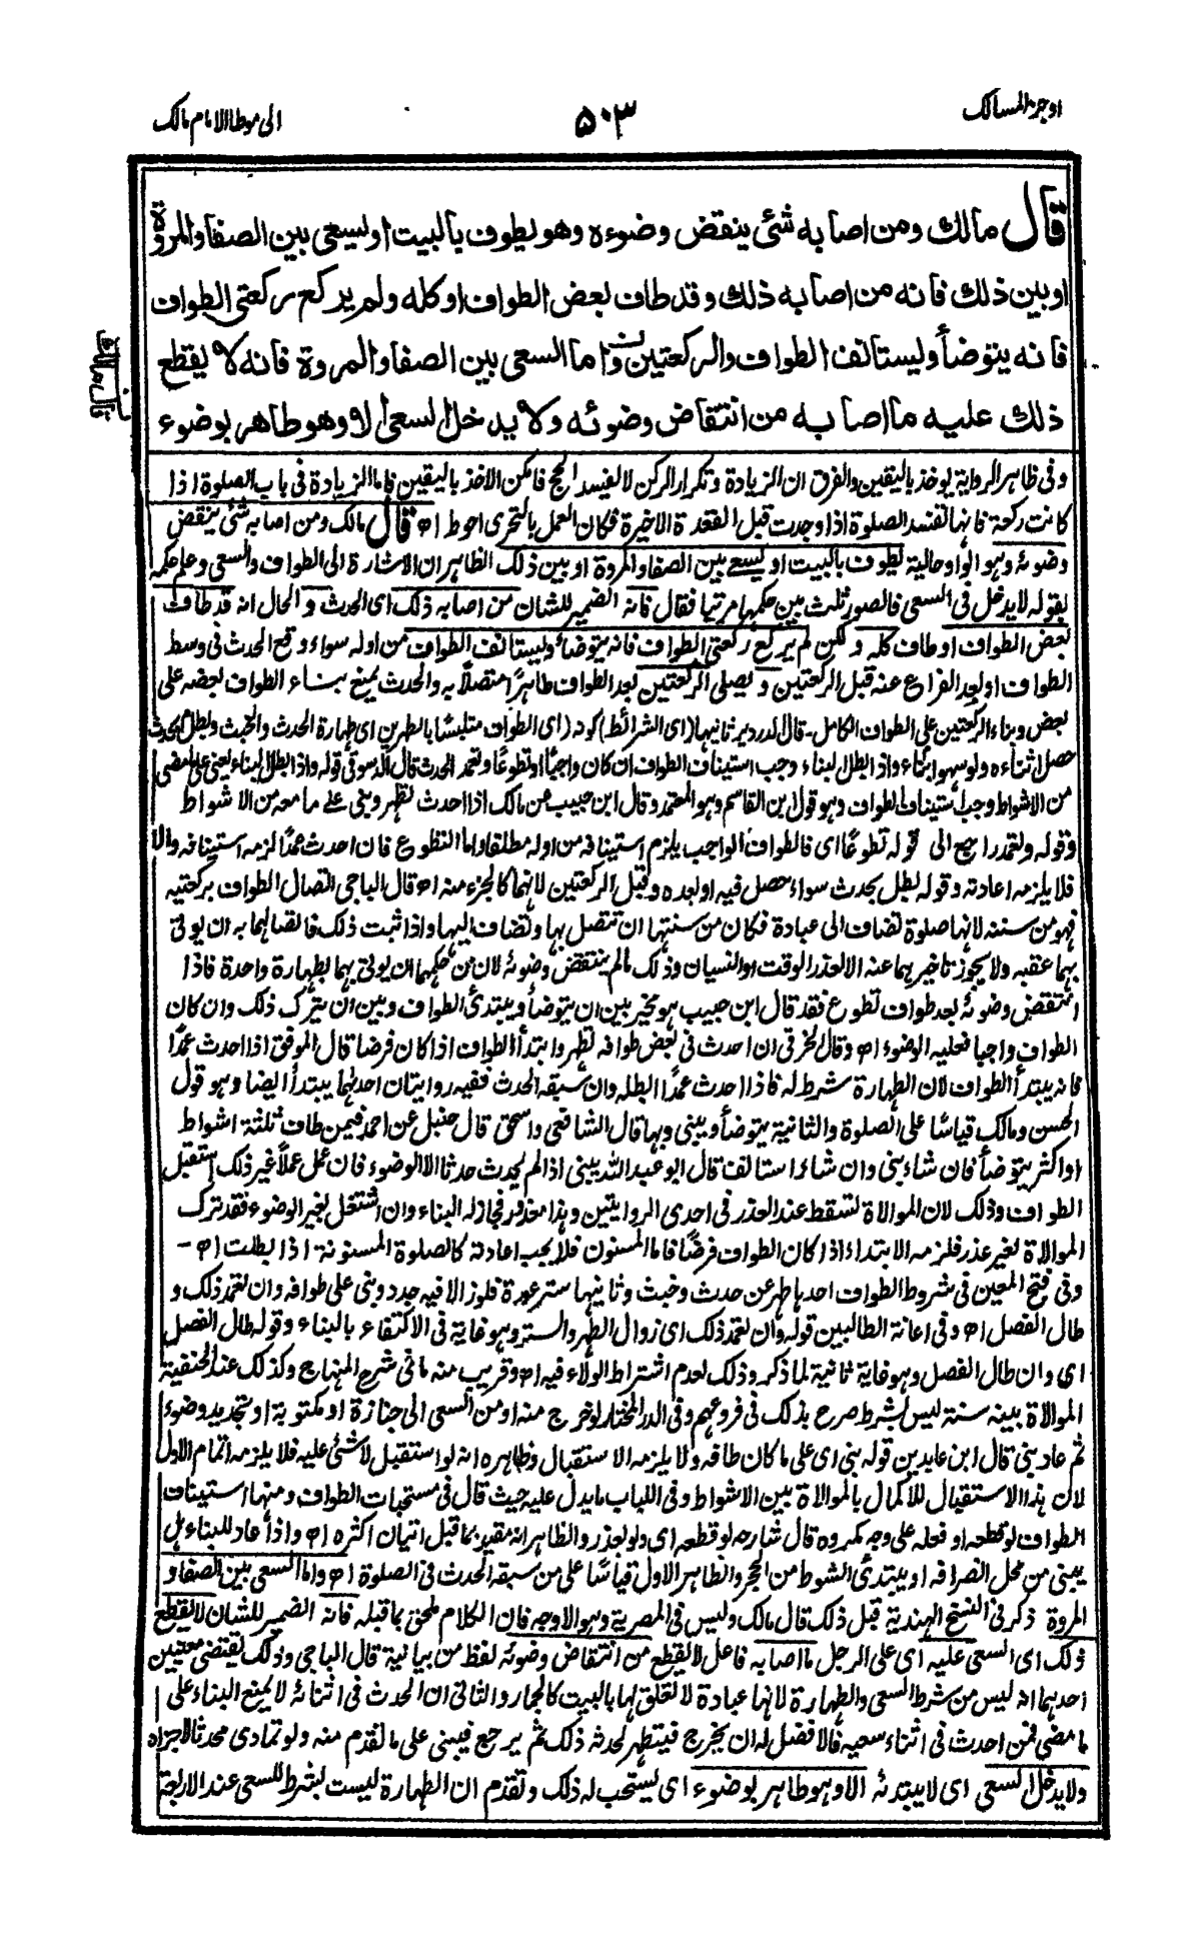 اوجز المسالك
۵۰۳
الى موطا الامام مالك
قال مالك ومن اصابه شئ ينقض وضوءه وهو يطوف بالبيت او يسعى بين الصفا والمروة
او بين ذلك فانه من اصابه ذلك وقد طاف بعض الطواف او كله ولم يركع ركعتى الطواف
فانه يتوضأ ويستانف الطواف والركعتين واما السعى بين الصفا والمروة فانه لا يقطع
ذلك عليه ما اصابه من انتقاض وضوئه ولا يدخل السعى الا وهو طاهر بوضوء
قال مالك
وفى ظاهر الرواية يوخذ باليقين والفرق ان الزيادة وتكرار الركن لا يفسد الحج فامكن الاخذ باليقين فاما الزيادة فى باب الصلوة اذا
كانت ركعة فانها تفسد الصلوة اذا وجدت قبل القعدة الاخيرة فكان العمل بالتحرى احوط اھ قال مالك ومن اصابه شئ ينقض
وضوئه وهو الواو حالية يطوف بالبيت او يسعے بين الصفا والمروة او بين ذلك الظاهر ان الاشارة الى الطواف والسعى وعلم حكمه
بقوله لا يدخل فى السعى فالصور ثلث بين حكمها مرتبا فقال فانه الضمير للشان من اصابه ذلك اى الحدث و الحال انه قد طاف
بعض الطواف او طاف كله و لكن لم يركع ركعتى الطواف فانه يتوضأ ويستانف الطواف من اوله سواء وقع الحدث فى وسط
الطواف او بعد الفراغ عنه قبل الركعتين و يصلى الركعتين بعد الطواف طاهرًا متصلًا به والحدث يمنع بناء الطواف بعضه على
بعض وبناء الركعتين على الطواف الكامل۔ قال الدردير ثانيها (اى الشرائط) كونه (اى الطواف متلبسًا بالطهرين اى طهارة الحدث والخبث وبطل بحدث
حصل اثناءه ولو سهوا بناء واذا بطل البناء وجب استيناف الطواف ان كان واجبًا او تطوعًا وتعمد الحدث قال الدسوقى قوله واذا بطل البناء يعنى على ما مضى
من الاشواط وجب استيناف الطواف وهو قول ابن القاسم وهو المعتمد وقال ابن حبيب عن مالك اذا احدث تطهر وبنى على ما معه من الاشواط
وقوله وتعمد راجع الى قوله تطوعًا اى فالطواف الواجب يلزم استينافه من اوله مطلقا واما التطوع فان احدث عمدًا لزمه استينافه والا
فلا يلزمه اعادته وقوله بطل بحدث سواء حصل فيه او بعده وقبل الركعتين لانهما كالجزء منه اھ قال الباجى اتصال الطواف بركعتيه
فهو من سننه لانها صلوة تضاف الى عبادة فكان من سنتها ان تتصل بها وتضاف اليها واذا ثبت ذلك فاتصالهما به ان يوتى
بهما عقبه ولا يجوز تاخيرهما عنه الا لعذر الوقت او النسيان وذلك مالم ينتقض وضوئه لان من حكمهما ان يوتى بهما بطهارة واحدة فاذا
انتقض وضوئه بعد طواف تطوع فقد قال ابن حبيب هو مخير بين ان يتوضأ ويبتدئ الطواف وبين ان يترك ذلك وان كان
الطواف واجبا فعليه الوضوء اھ وقال الخرقى ان احدث فى بعض طوافه تطهر وابتدأ الطواف اذا كان فرضا قال الموفق اذا احدث عمدًا
فانه يبتدأ الطواف لان الطهارة شرط له فاذا احدث عمدًا ابطله وان سبقه الحدث ففيه روايتان احدهما يبتدأ ايضا وهو قول
الحسن ومالك قياسًا على الصلوة والثانية يتوضأ ويبنى وبها قال الشافعى واسحق قال حنبل عن احمد فيمن طاف ثلثة اشواط
او اكثر يتوضأ فان شاء بنى وان شاء استانف قال ابو عبد الله يبنى اذا لم يحدث حدثا الا الوضوء فان عمل عملًا غير ذلك استقبل
الطواف وذلك لان الموالاة تسقط عند العذر فى احدى الروايتين وهذا معذور فجاز له البناء وان اشتغل بغير الوضوء فقد ترك
الموالاة لغير عذر فلزمه الابتداء اذا كان الطواف فرضًا فاما المسنون فلا يجب اعادته كالصلوة المسنونة اذا بطلت اھ۔
وفى فتح المعين فى شروط الطواف احدها طهر عن حدث وخبث وثانيهما ستر عورة فلو زالا فيه جدد وبنى على طوافه وان تعمد ذلك و
طال الفصل اھ وفى اعانة الطالبين قوله وان تعمد ذلك اى زوال الطهر والستر وهو غاية فى الاكتفاء بالبناء وقوله طال الفصل
اى وان طال الفصل وهو غاية ثانية لما ذكر وذلك لعدم اشتراط الولاء فيه اھ وقريب منه ما فى شرح المنهاج وكذلك عند الحنفية
الموالاة بينه سنة ليس بشرط صرح بذلك فى فروعهم وفى الدر المختار لو خرج منه او من السعى الى جنازة او مكتوبة او تجديد وضوء
ثم عاد بنى قال ابن عابدين قوله بنى اى على ما كان طافه ولا يلزمه الاستقبال وظاهره انه لو استقبل لا شئ عليه فلا يلزمه اتمام الاول
لان هذا الاستقبال للاكمال بالموالاة بين الاشواط وفى اللباب ما يدل عليه حيث قال فى مستحبات الطواف ومنها استيناف
الطواف لو قطعه او فعله على وجه مكروه قال شارحه لو قطعه اى ولو لعذر والظاهر انه مقيد بما قبل اتيان اكثره اھ واذا عاد للبناء هل
يبنى من محل انصرافه او يبتدئ الشوط من الحجر والظاهر الاول قياسًا على من سبقه الحدث فى الصلوة اھ واما السعى بين الصفا و
المروة ذكر فى النسخ الهندية قبل ذلك قال مالك وليس فى المصرية وهو الاوجه فان الكلام ملحق بما قبله فانه الضمير للشان لا يقطع
ذلك اى السعى عليه اى على الرجل ما اصابه فاعل لا يقطع من انتقاض وضوئه لفظ من بيانية قال الباجى وذلك يقتضى معنيين
احدهما انه ليس من شرط السعى والطهارة لانها عبادة لا تعلق لها بالبيت كالجمار والثانى ان الحدث فى اثنائه لا يمنع البناء على
ما مضى فمن احدث فى اثناء سعيه فالافضل له ان يخرج فيتطهر لحدثه ذلك ثم يرجع فيبنى على ما تقدم منه ولو تمادى محدثا لاجزاه
ولا يدخل السعى اى لا يبتدئه الا وهو طاهر بوضوء اى يستحب له ذلك وتقدم ان الطهارة ليست بشرط للسعى عند الاربعة